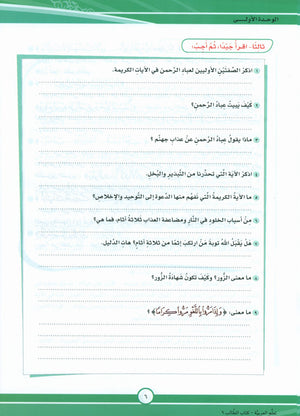 الوحدة الأولى
ثالثًا- اقرأ جيدًا، ثم أجب:
١ اذكر الصفتين الأوليين لعباد الرحمن في الآيات الكريمة.
٢ كيف يبيت عباد الرحمن؟
٣ ماذا يقول عباد الرحمن عن عذاب جهنم؟
٤ اذكر الآية التي تحذرنا من التبذير والبخل.
٥ ما الآية الكريمة التي نفهم منها الدعوة إلى التوحيد والإخلاص؟
٦ من أسباب الخلود في النار ومضاعفة العذاب ثلاثة آثام، فما هي؟
٧ هل يقبل الله توبة من ارتكب إثمًا من ثلاثة آثام؟ هات الدليل.
٨ ما معنى الزور؟ وكيف تكون شهادة الزور؟
٩ ما معنى: ﴿وَإِذَا مَرُّوا بِاللَّغْوِ مَرُّوا كِرَامًا﴾؟
٦
تعلم العربية - كتاب الطالب ٦